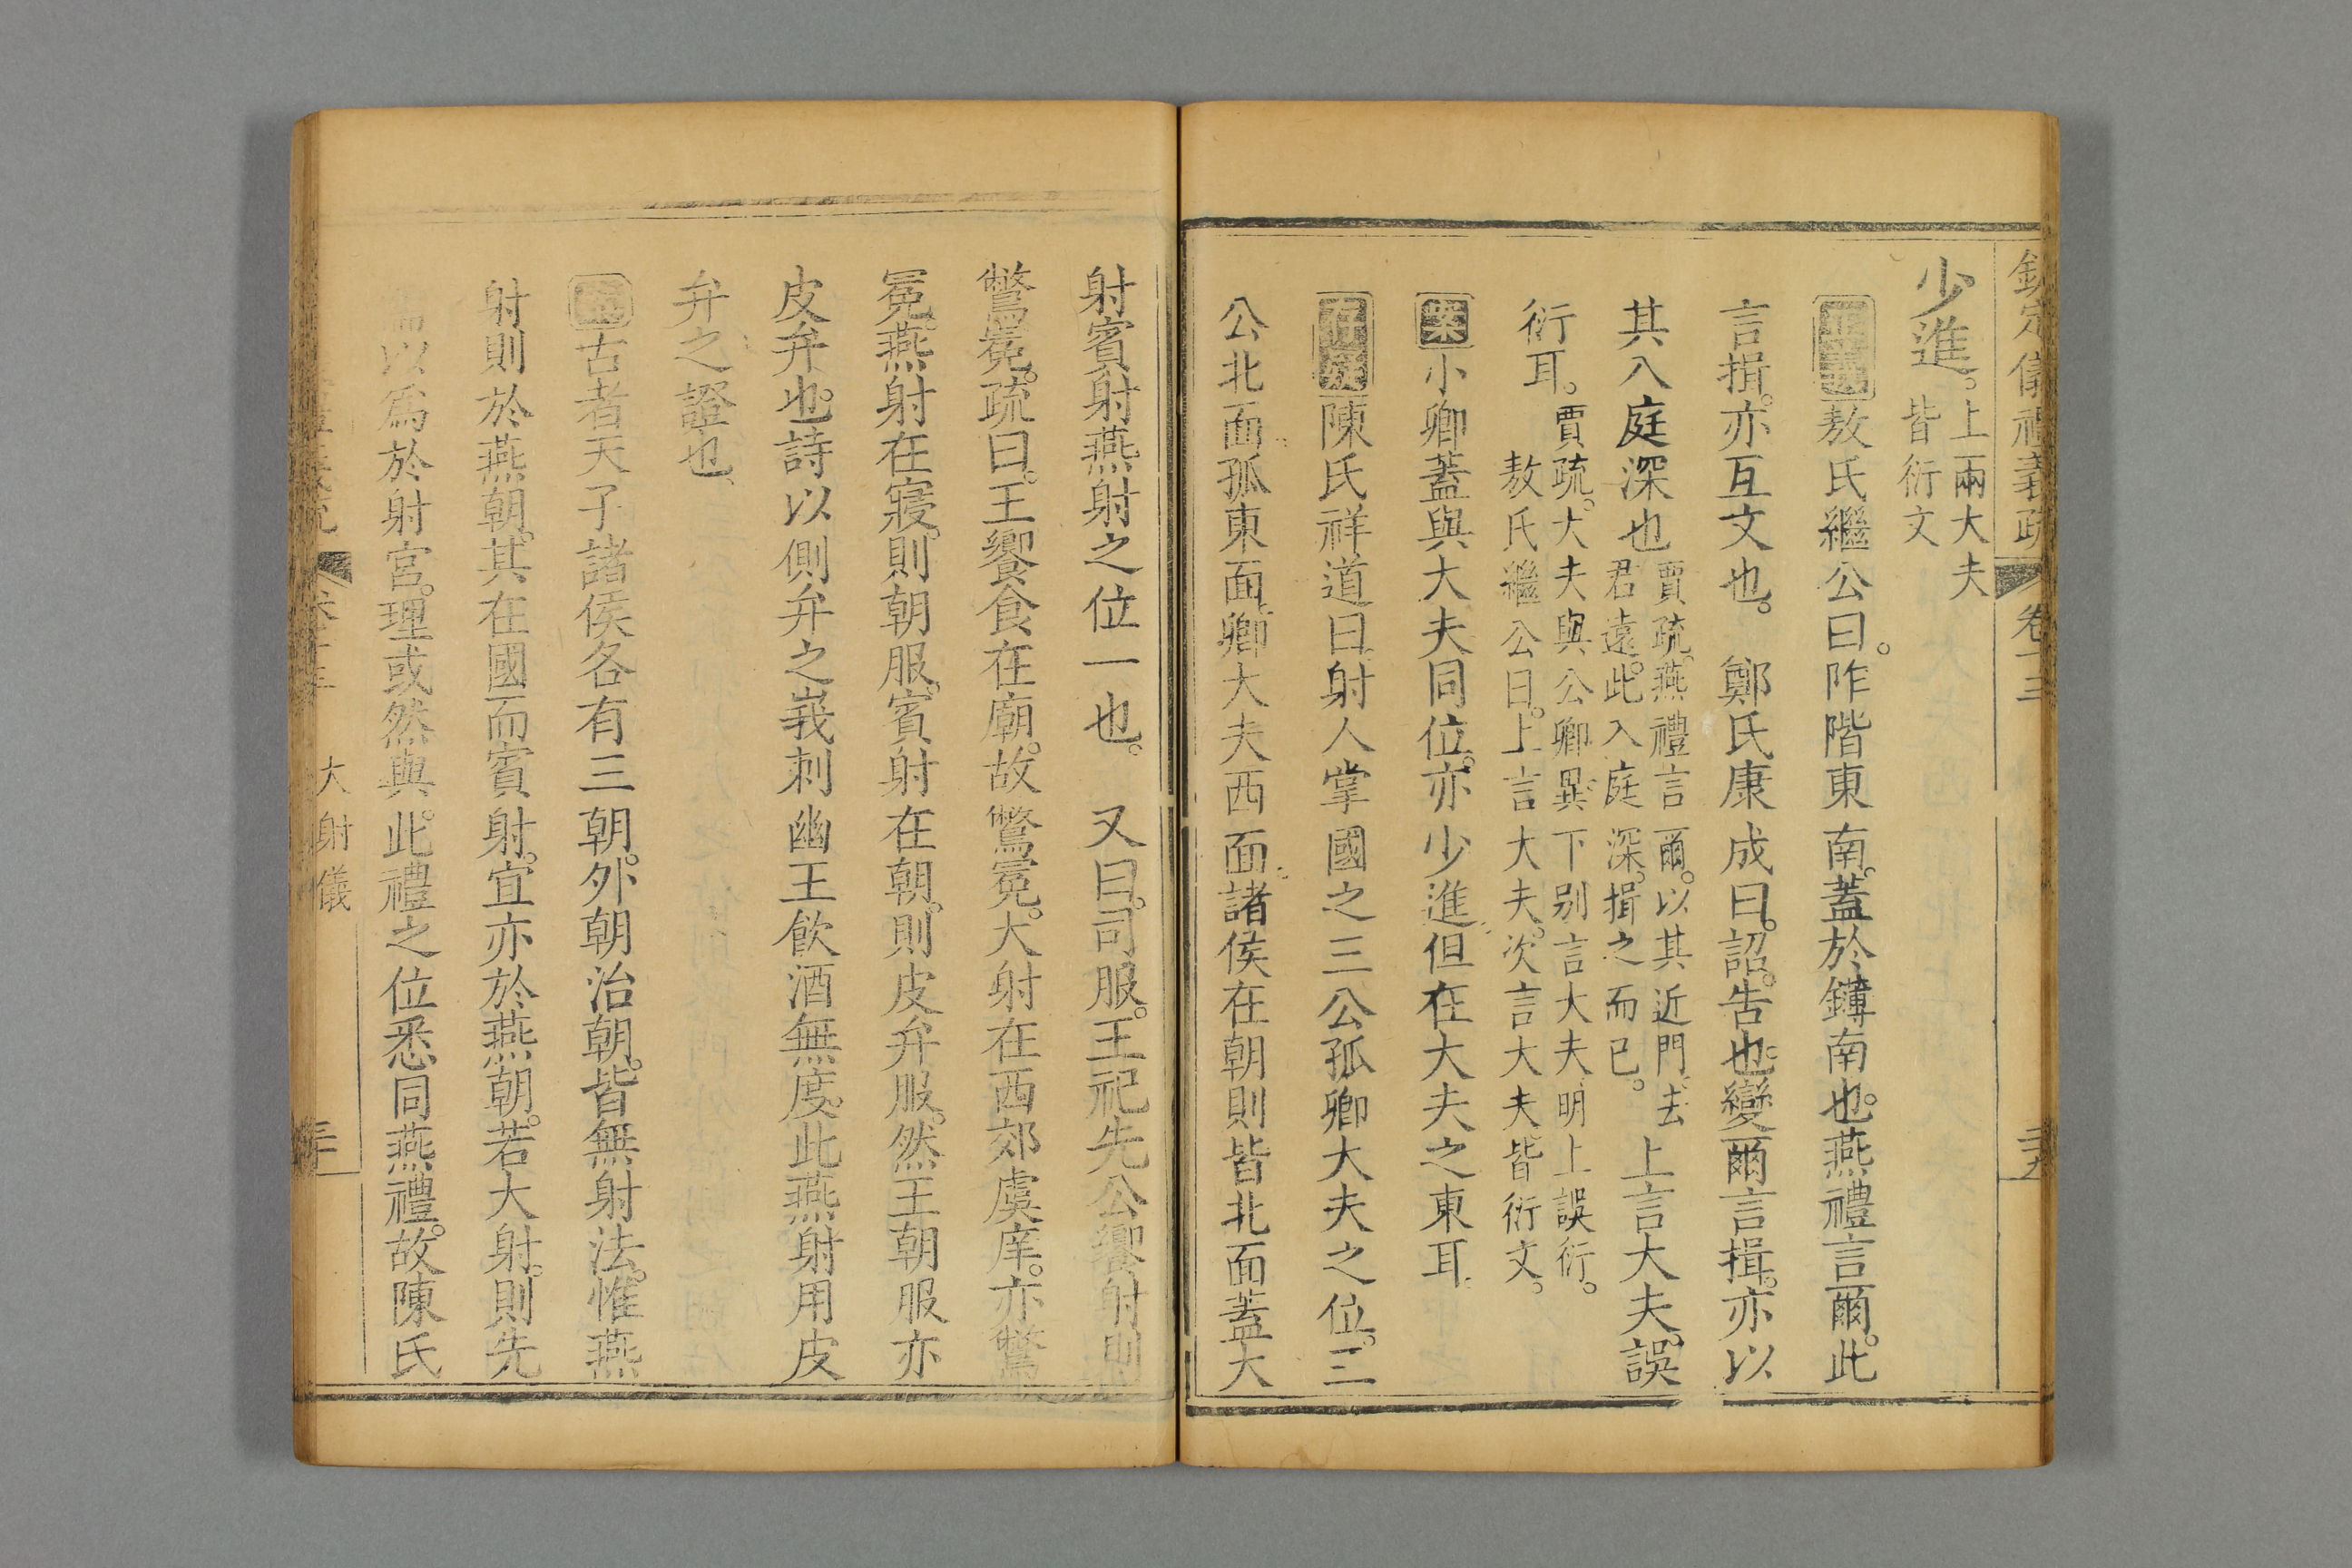 欽定儀禮義疏 卷十三
少進。上兩大夫
皆衍文
正義敖氏繼公曰。阼階東南。蓋於鑮南也。燕禮言爾。此
言揖。亦互文也。 鄭氏康成曰。詔。告也。變爾言揖。亦以
其入庭深也 賈疏。燕禮言爾。以其近門。去
君遠。此入庭深。揖之而已。
上言大夫。誤
衍耳。賈疏。大夫與公卿異。下別言大夫。明上誤衍。
敖氏繼公曰。上言大夫。次言大夫。皆衍文。
案小卿蓋與大夫同位。亦少進。但在大夫之東耳
存疑陳氏祥道曰。射人掌國之三公孤卿大夫之位。三
公北面。孤東面。卿大夫西面。諸侯在朝則皆北面蓋大
射賓射燕射之位一也。 又曰。司服。王祀先公饗射則
鷩冕。疏曰。王饗食在廟。故鷩冕。大射在西郊虞庠。亦鷩
冕。燕射在寢。則朝服。賓射在朝。則皮弁服。然王朝服亦
皮弁也。詩以側弁之峩刺幽王飲酒無度。此燕射用皮
弁之證也
案古者天子諸侯各有三朝。外朝治朝。皆無射法。惟燕
射則於燕朝。其在國而賓射。宜亦於燕朝。若大射。則先
儒以爲於射宮。理或然與。此禮之位悉同燕禮。故陳氏
大射儀